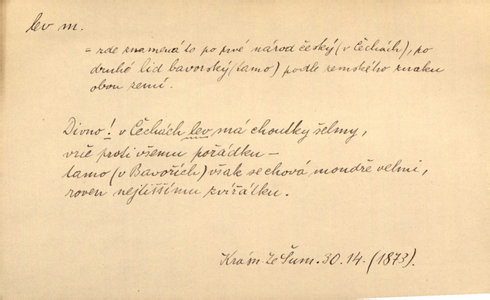 lev m.
= zde znamená to po prvé národ český (v Čechách), po
druhé lid bavorský (tamo) podle zemského znaku
obou zemí.
Divno! v Čechách lev má choutky šelmy,
vrčí proti všemu pořádku —
tamo (v Bavořích) však se chová mondře velmi,
roven nejtiššímu zvířátku.
Krám. Ze Šum. 30. 14. (1873).